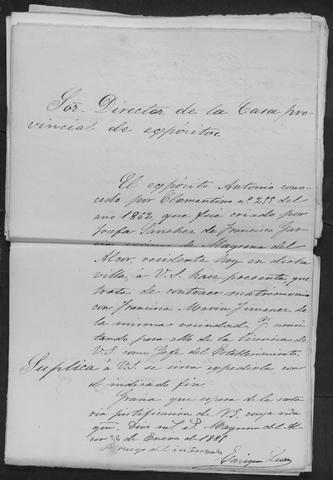 Sor. Director de la Casa pro-
vincial de expósitos.
El expósito Antonio cono-
cido por Clementino nº 255 del
año 1862, que fue criado por
Josefa Sanchez de Francisco Gar-
cia vecina de Mayrena del
Alcor, recidente hoy en dicha
villa, á V.S. hace presente que
trata de contraer matrimonio
con Francisca Marin Jimenez de
la misma vecindad. Y necesi-
tando para ello de la licencia de
V.S. como Jefe del Establecimiento.
Suplica á V.S. se sirva expedirla con
el indicado fin.
Gracia que espera de la noto-
ria justificacion de V.S. cuya vida
gue. Dios ms. as. Mayrena del Al-
cor 26 de Enero de 1888
A ruego del interesado
Enrique